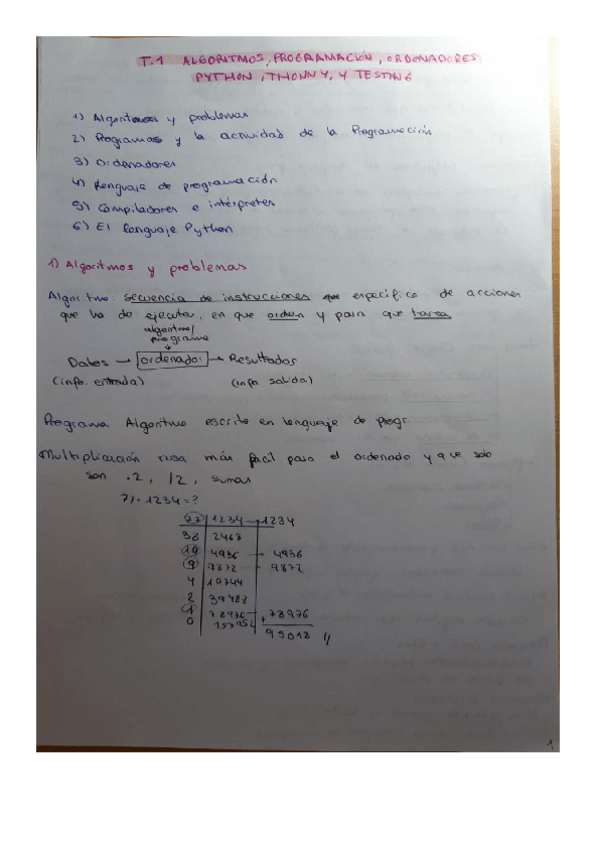 T.1 ALGORITMOS, PROGRAMACIÓN, ORDENADORES
PYTHON, THONNY, Y TESTING
1) Algoritmos y problemas
2) Programas y la actividad de la Programación
3) Ordenadores
4) Lenguaje de programación
5) Compiladores e intérpretes
6) El lenguaje Python
1) Algoritmos y problemas
Algoritmo: secuencia de instrucciones que específica de acciones
que ha de ejecutar, en que orden y para que tarea
algoritmo/
programa
Datos → ordenador → Resultados
(info. entrada) (info. salida)
Programa Algoritmo escrito en lenguaje de progr.
Multiplicación rusa más fácil para el ordenado y a que solo
son .2, /2, sumas
77.1234=?
77 1234 → 1234
38 2468
19 4936 - 4936
9 9872 - 9872
4 19744
2 39488
1 78976 78976
0 157952
95018 //
1